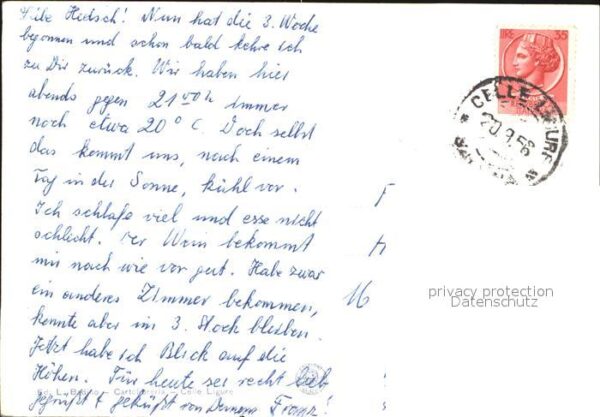 Liebe Hedsch! Nun hat die 3. Woche
begonnen und schon bald kehre ich
zu Dir zurück. Wir haben hier
abends gegen 21 Uhr immer
noch etwa 20° C. Doch selbst
das kommt uns, nach einem
Tag in der Sonne, kühl vor.
Ich schlafe viel und esse nicht
schlecht. Der Wein bekommt
mir nach wie vor gut. Habe zwar
ein anderes Zimmer bekommen,
konnte aber im 3. Stock bleiben.
Jetzt habe ich Blick auf die
Höhen. Für heute sei recht lieb
gegrüßt + geküßt von Deinem Franz!
Cartoleria - Celle Ligure
LIRE 35
CELLE LIGURE
20.9.56
16
privacy protection
Datenschutz